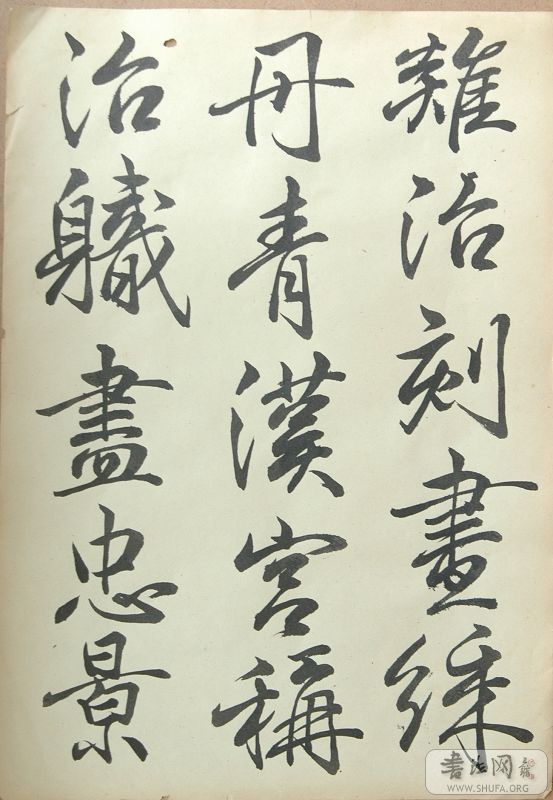 難治刻畫綵
丹青漢宮稱
治軄盡忠景
书法网
WWW.SHUFA.ORG